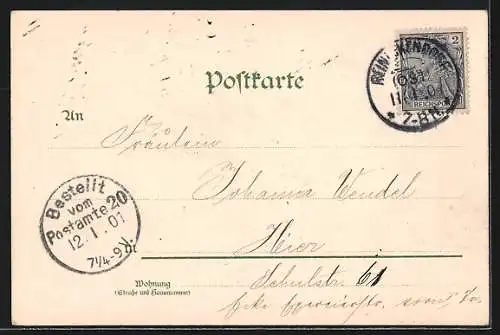 Postkarte
REINICKENDORF
(OST)
11.1.01
* 7-8N.
2
REICHSPOST
An
Fräulein
Johanna Wendel
Hier
Schulstr 61
Ecke
Bestellt
vom
Postamte 20
12.1.01
7¼-9
Wohnung
(Straße und Hausnummer)